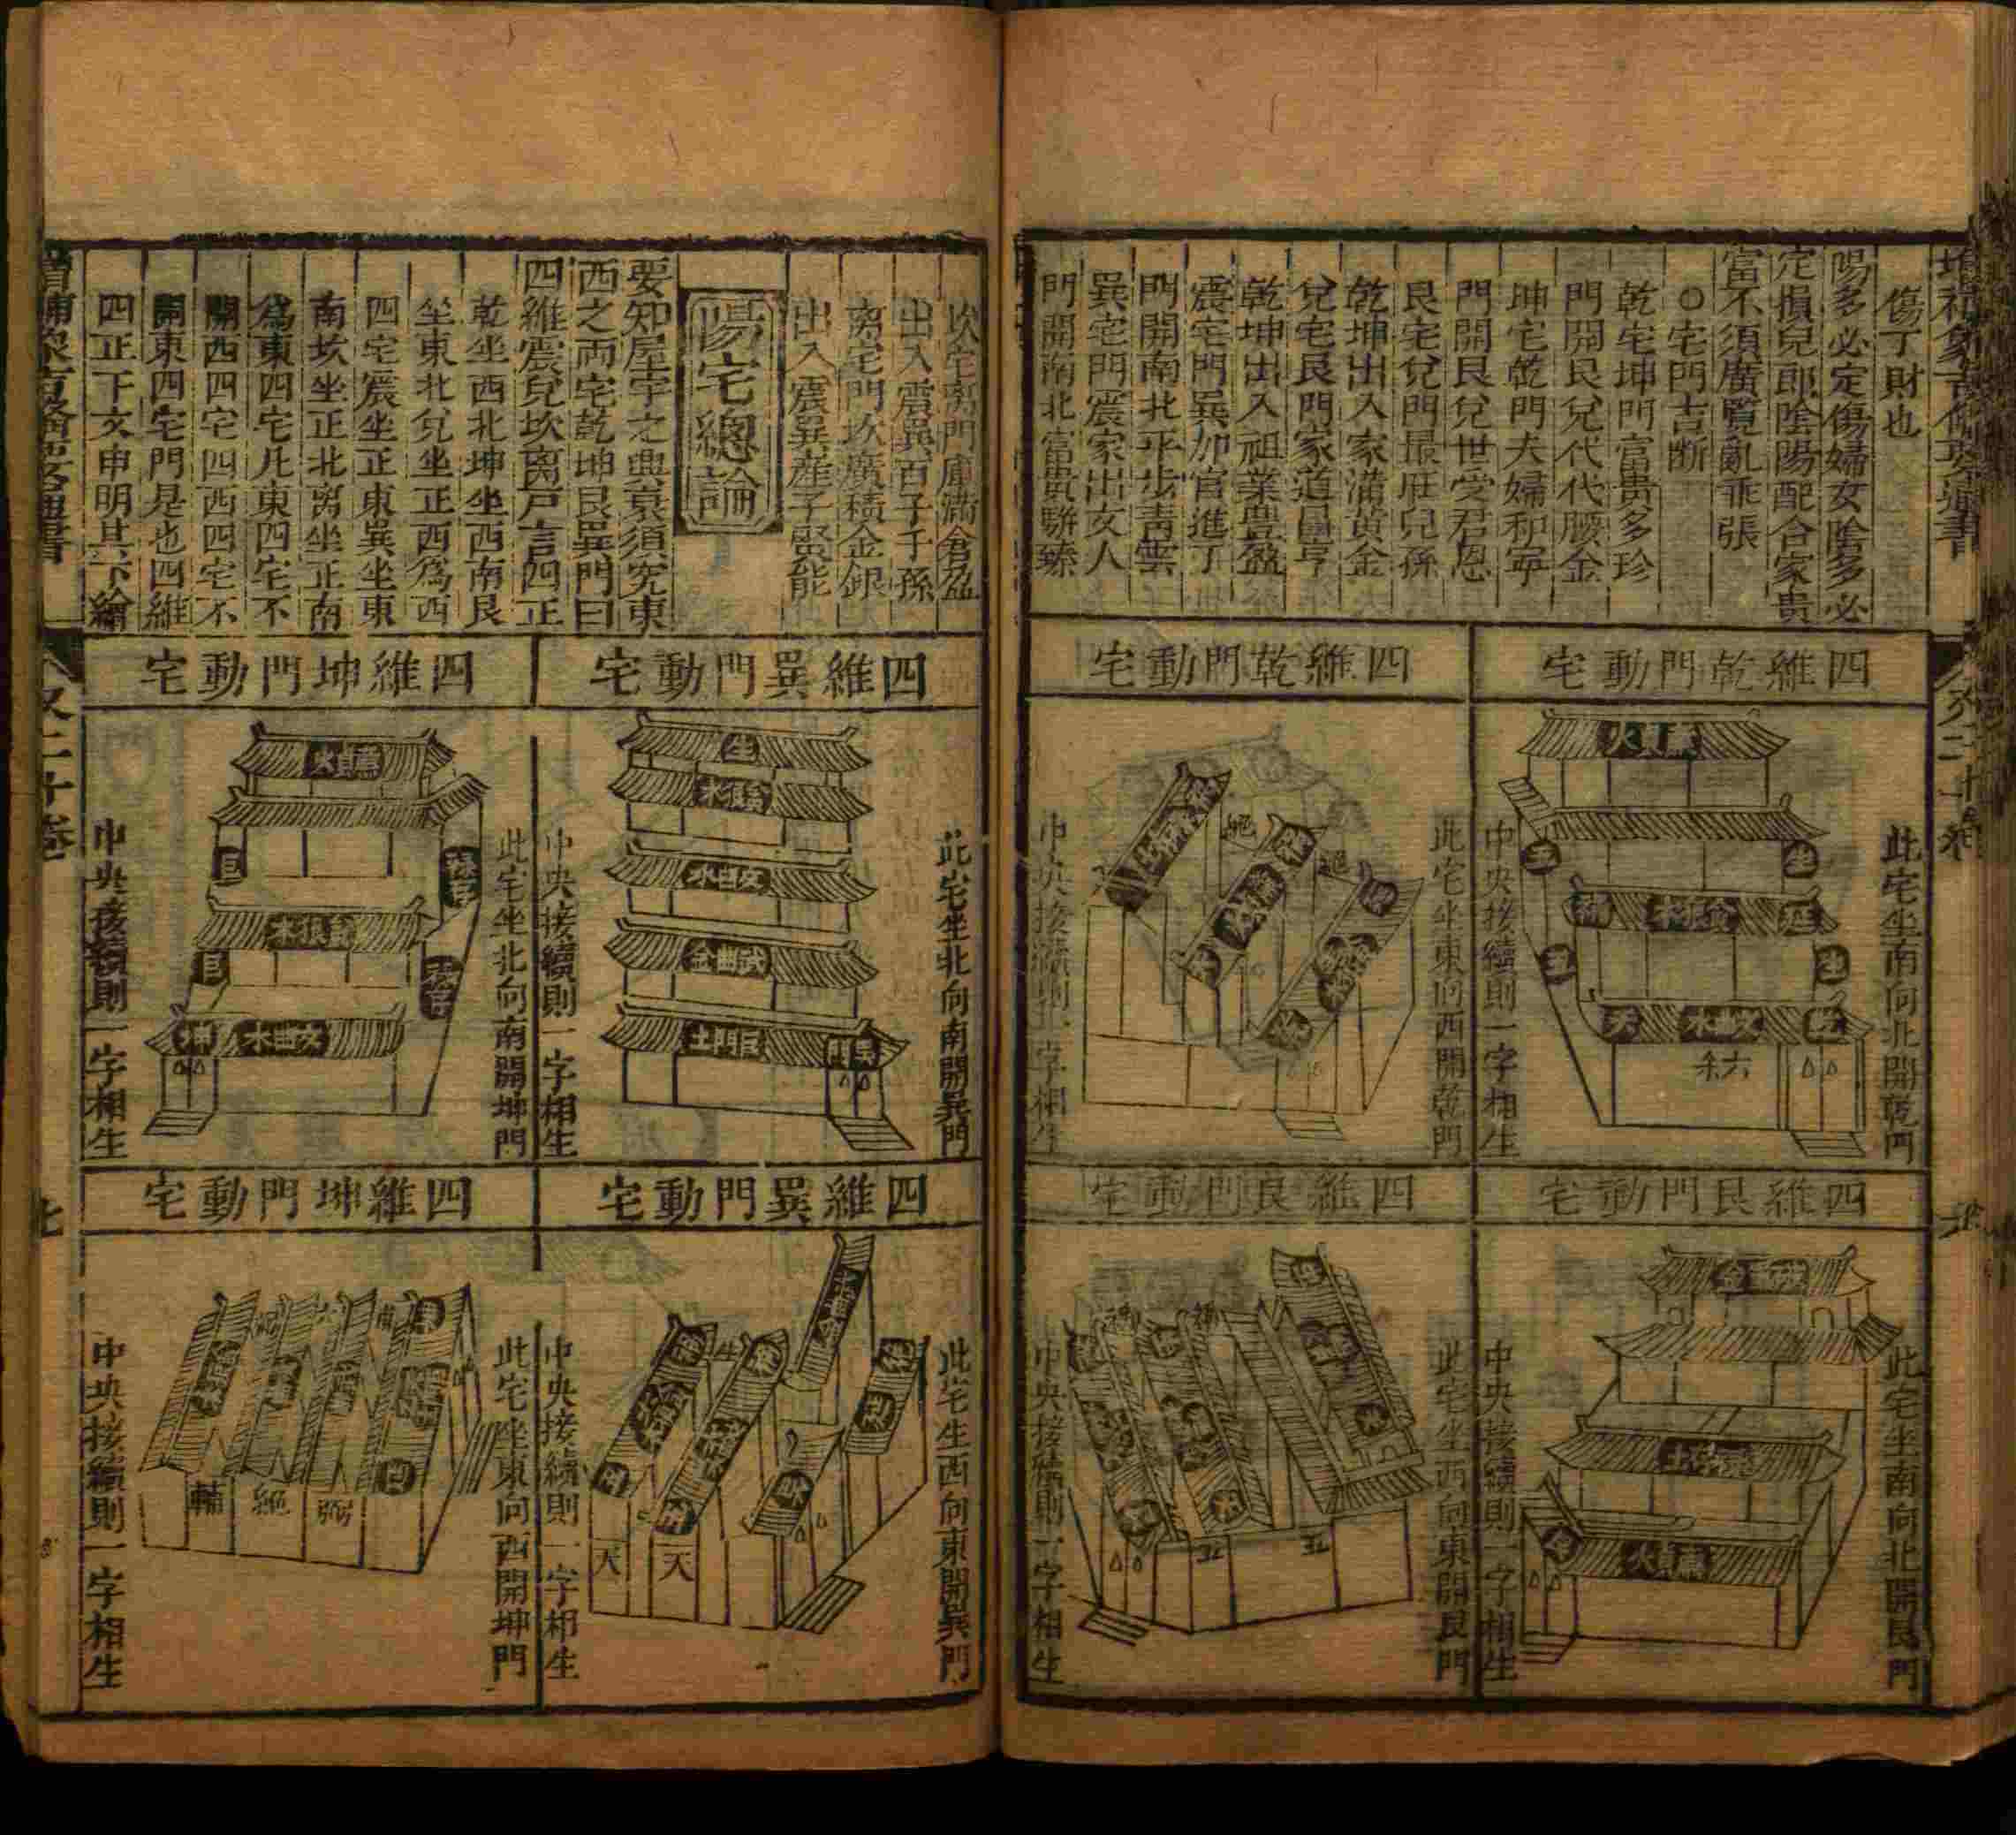 傷丁財也
陽多必定傷婦女陰多必
定損兒郎陰陽配合家貴
富不須廣覽亂乖張
○宅門吉断
乾宅坤門富貴多珍
門開艮兌代代腰金
坤宅乾門夫婦和寧
門開艮兌世受君恩
艮宅兌門最旺兒孫
乾坤出入家滿黃金
兌宅艮門家道昌亨
乾坤出入祖業豊盈
震宅門巽加官進丁
門開南北平步靑雲
巽宅門震家出文人
門開南北富貴駢臻
四維乾門動宅
此宅坐南向北開乾門
廉貞火
貪狼木
文曲水
中央接續則一字相生
四維乾門動宅
此宅坐東向西開乾門
中央接續則一字相生
四維艮門動宅
此宅坐南向北開艮門
廉貞火
中央接續則一字相生
四維艮門動宅
此宅坐西向東開艮門
中央接續則一字相生
坎宅离門庫滿倉盈
出入震巽百子千孫
离宅門坎廣積金銀
出入震巽産子賢能
陽宅總論
要知屋宇之興衰須究東
西之两宅乾坤艮巽門曰
四維震兌坎离戸言四正
乾坐西北坤坐西南艮
坐東北兌坐正西爲西
四宅震坐正東巽坐東
南坎坐正北离坐正南
爲東四宅凡東四宅不
開西四宅門西四宅不
開東四宅門是也四維
四正下文申明其下繪
四維巽門動宅
此宅坐北向南開巽門
生
貪狼木
文曲水
武曲金
巨門土
巽門
中央接續則一字相生
四維坤門動宅
此宅坐北向南開坤門
廉貞火
貪狼木
文曲水
坤
中央接續則一字相生
四維巽門動宅
此宅坐西向東開巽門
天
天
中央接續則一字相生
四維坤門動宅
此宅坐東向西開坤門
輔
絶
弼
中央接續則一字相生